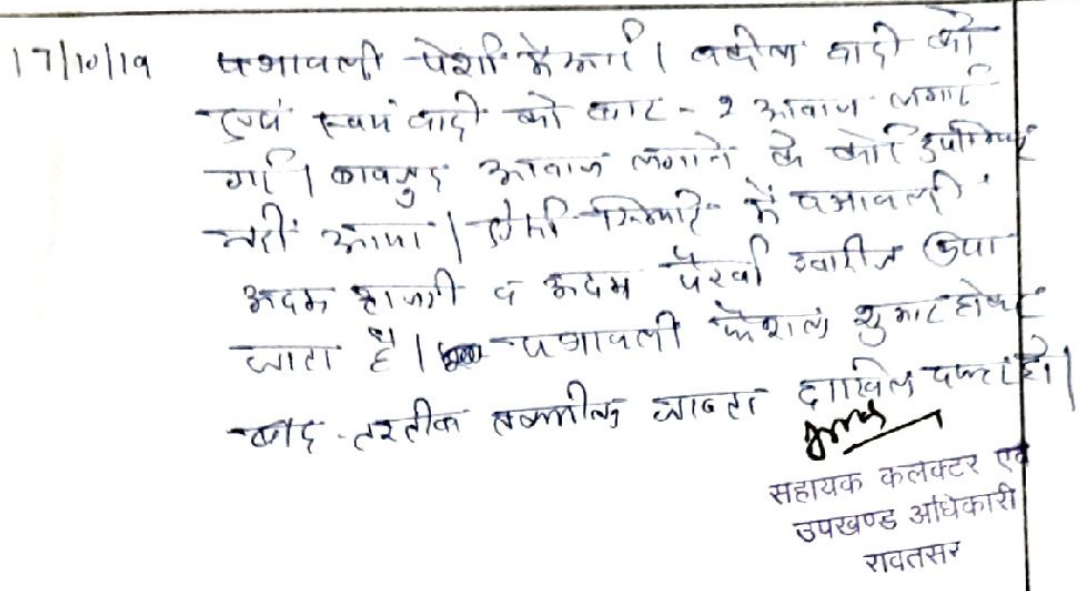 17/10/19 पत्रावली पेशी में आई। वकील वादी को
एवं स्वयं वादी को बार - २ आवाज लगाई
गई। बावजुद आवाज लगाने के कोई उपस्थित
नहीं आया। ऐसी स्थिति में पत्रावली
अदम हाजरी व अदम पैरवी खारीज किया
जाता है। पत्रावली फैशल शुमार होकर
बाद तरतीब तकमील जाब्ता दाखिल दफ्तर हो।
सहायक कलक्टर एवं
उपखण्ड अधिकारी
रावतसर